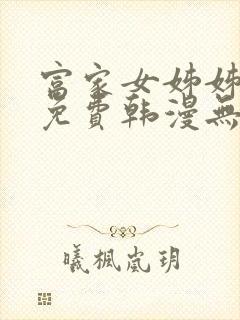 富家女姊姊
免費韩漫無
曦楓嵐玥